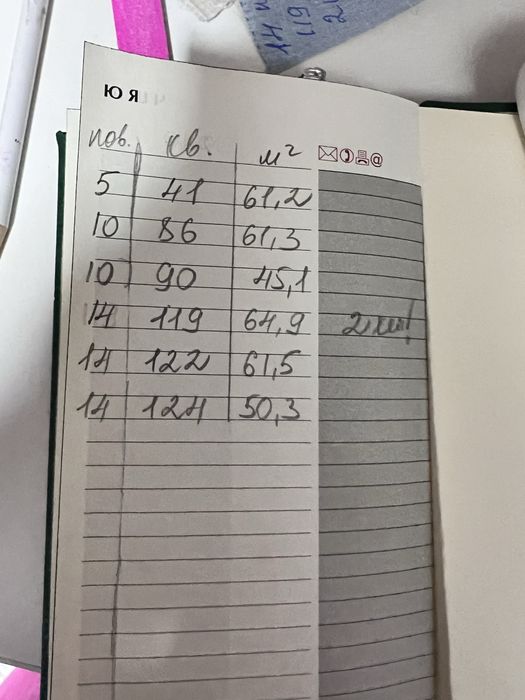 14
119
2
Ю Я
пов. кв. м²
5 41 61,2
10 86 61,3
10 90 45,1
14 119 64,9 2 шт!
14 122 61,5
14 124 50,3